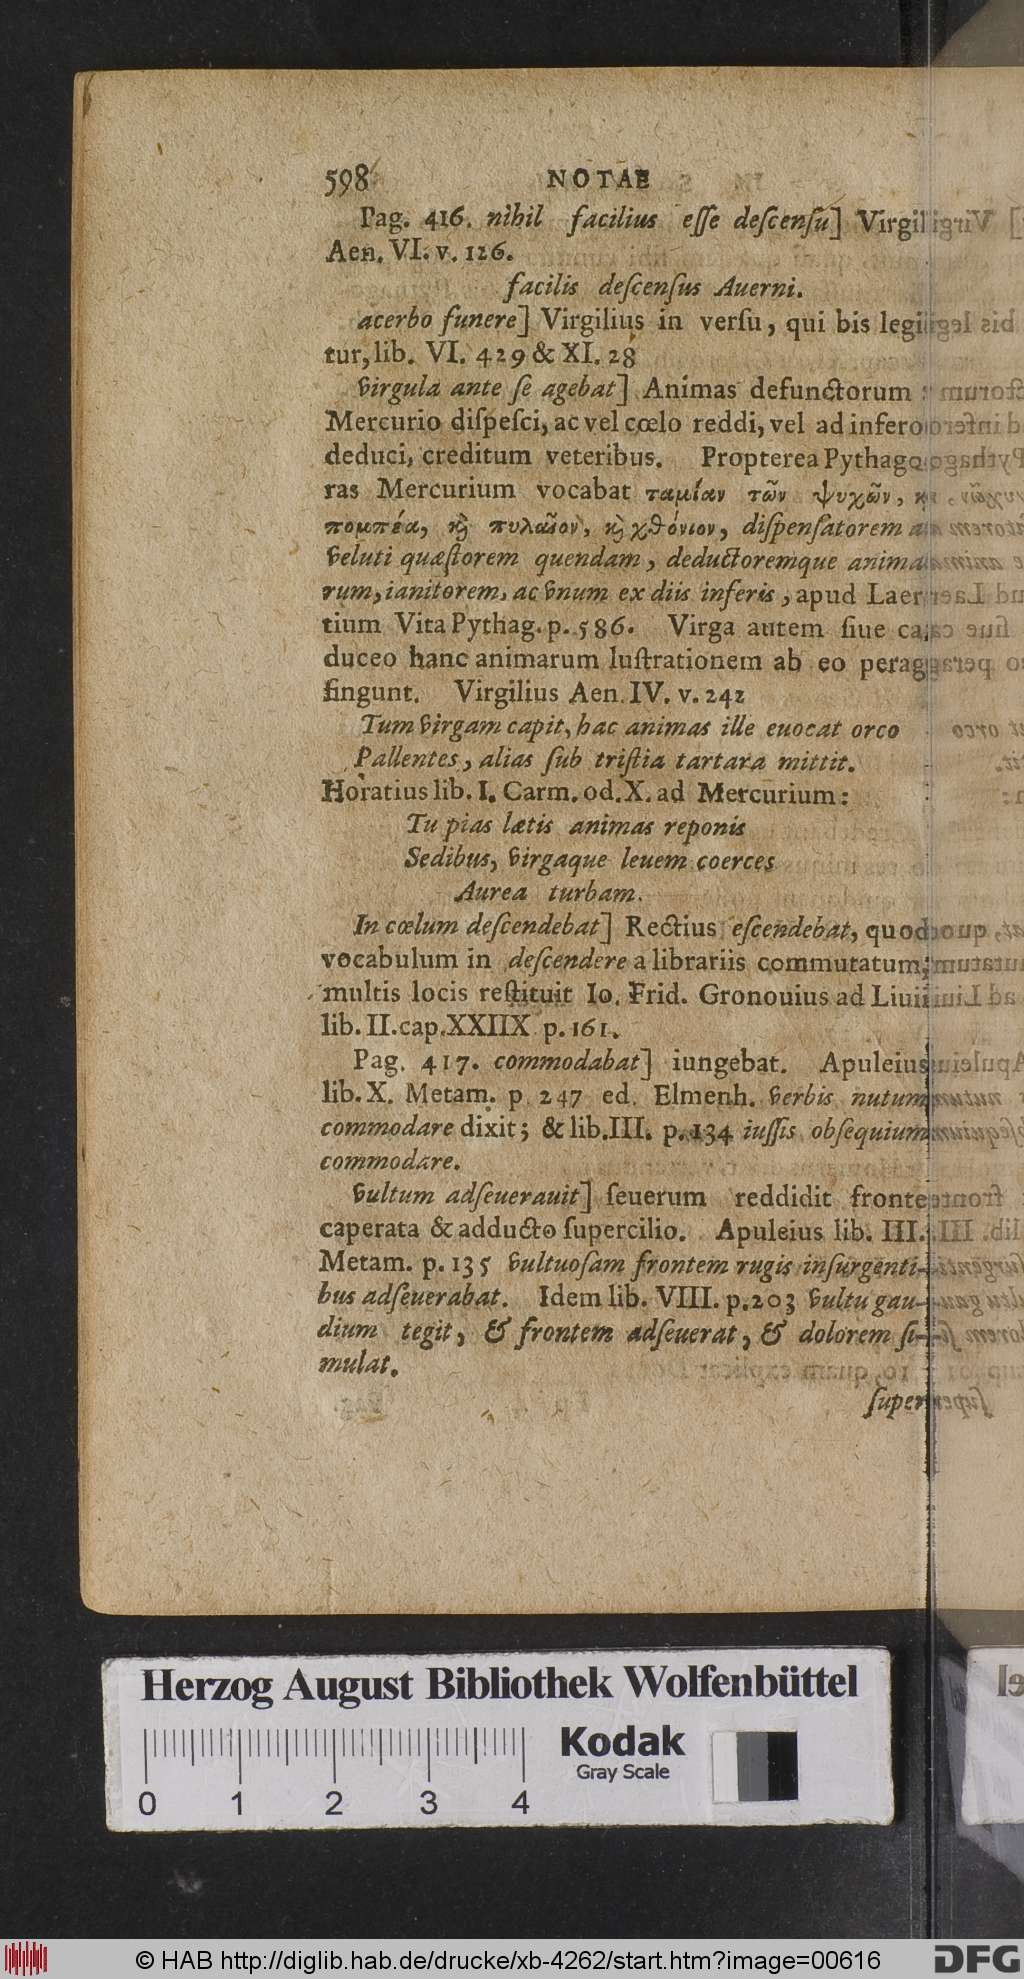 598 NOTAE
Pag. 416. nihil facilius eſſe deſcenſu] Virgil
Aen. VI. v. 126.
facilis deſcenſus Auerni.
acerbo funere] Virgilius in verſu, qui bis legi
tur, lib. VI. 429 & XI. 28
virgula ante ſe agebat] Animas defunctorum
Mercurio diſpeſci, ac vel cœlo reddi, vel ad infero
deduci, creditum veteribus. Propterea Pythago
ras Mercurium vocabat ταμίαν τῶν ψυχῶν, καὶ
πομπέα, καὶ πυλαῖον, καὶ χθόνιον, diſpenſatorem a
veluti quæſtorem quendam, deductoremque anima
rum, ianitorem, ac vnum ex diis inferis, apud Laer
tium Vita Pythag. p. 586. Virga autem ſiue ca
duceo hanc animarum luſtrationem ab eo perag
fingunt. Virgilius Aen. IV. v. 242
Tum virgam capit, hac animas ille euocat orco
Pallentes, alias ſub triſtia tartara mittit.
Horatius lib. I. Carm. od. X. ad Mercurium:
Tu pias lætis animas reponis
Sedibus, virgaque leuem coerces
Aurea turbam.
In cœlum deſcendebat] Rectius eſcendebat, quod
vocabulum in deſcendere a librariis commutatum
multis locis reſtituit Io. Frid. Gronouius ad Liuii
lib. II. cap. XXIIX p. 161.
Pag. 417. commodabat] iungebat. Apuleius
lib. X. Metam. p. 247 ed. Elmenh. verbis nutum
commodare dixit; & lib. III. p. 134 iuſſis obſequium
commodare.
vultum adſeuerauit] ſeuerum reddidit fronte
caperata & adducto ſupercilio. Apuleius lib. III.
Metam. p. 135 vultuoſam frontem rugis inſurgenti-
bus adſeuerabat. Idem lib. VIII. p. 203 vultu gau-
dium tegit, & frontem adſeuerat, & dolorem ſi-
mulat.
ſuper
Herzog August Bibliothek Wolfenbüttel
Kodak
Gray Scale
0 1 2 3 4
© HAB http://diglib.hab.de/drucke/xb-4262/start.htm?image=00616
DFG